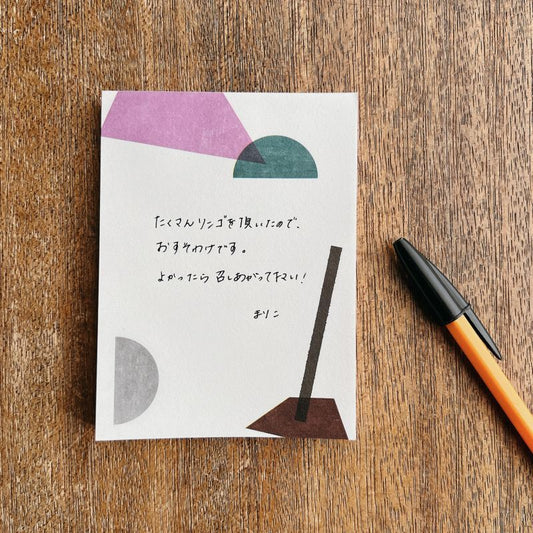 たくさんリンゴを頂いたので、
おすそわけです。
よかったら召しあがって下さい!
まりこ